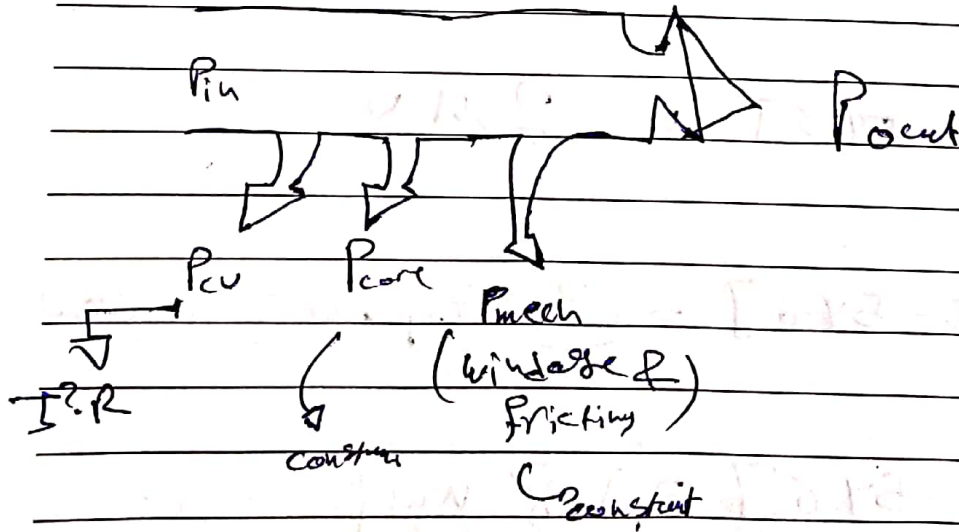 Pin
Pout
Pcu
Pcore
Pmech
I².R
(windage &
fricting)
constan
constant